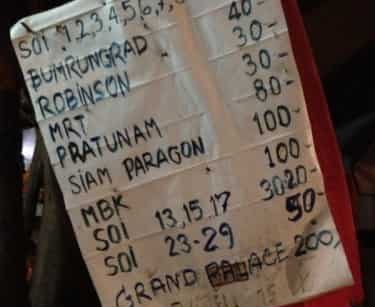 SOI 1,2,3,4,5,6,7,8 40-
BUMRUNGRAD 30-
ROBINSON 30-
MRT 80-
PRATUNAM 100-
SIAM PARAGON 100-
MBK 3020-
SOI 13,15,17 50-
SOI 23-29
GRAND PALACE 200,